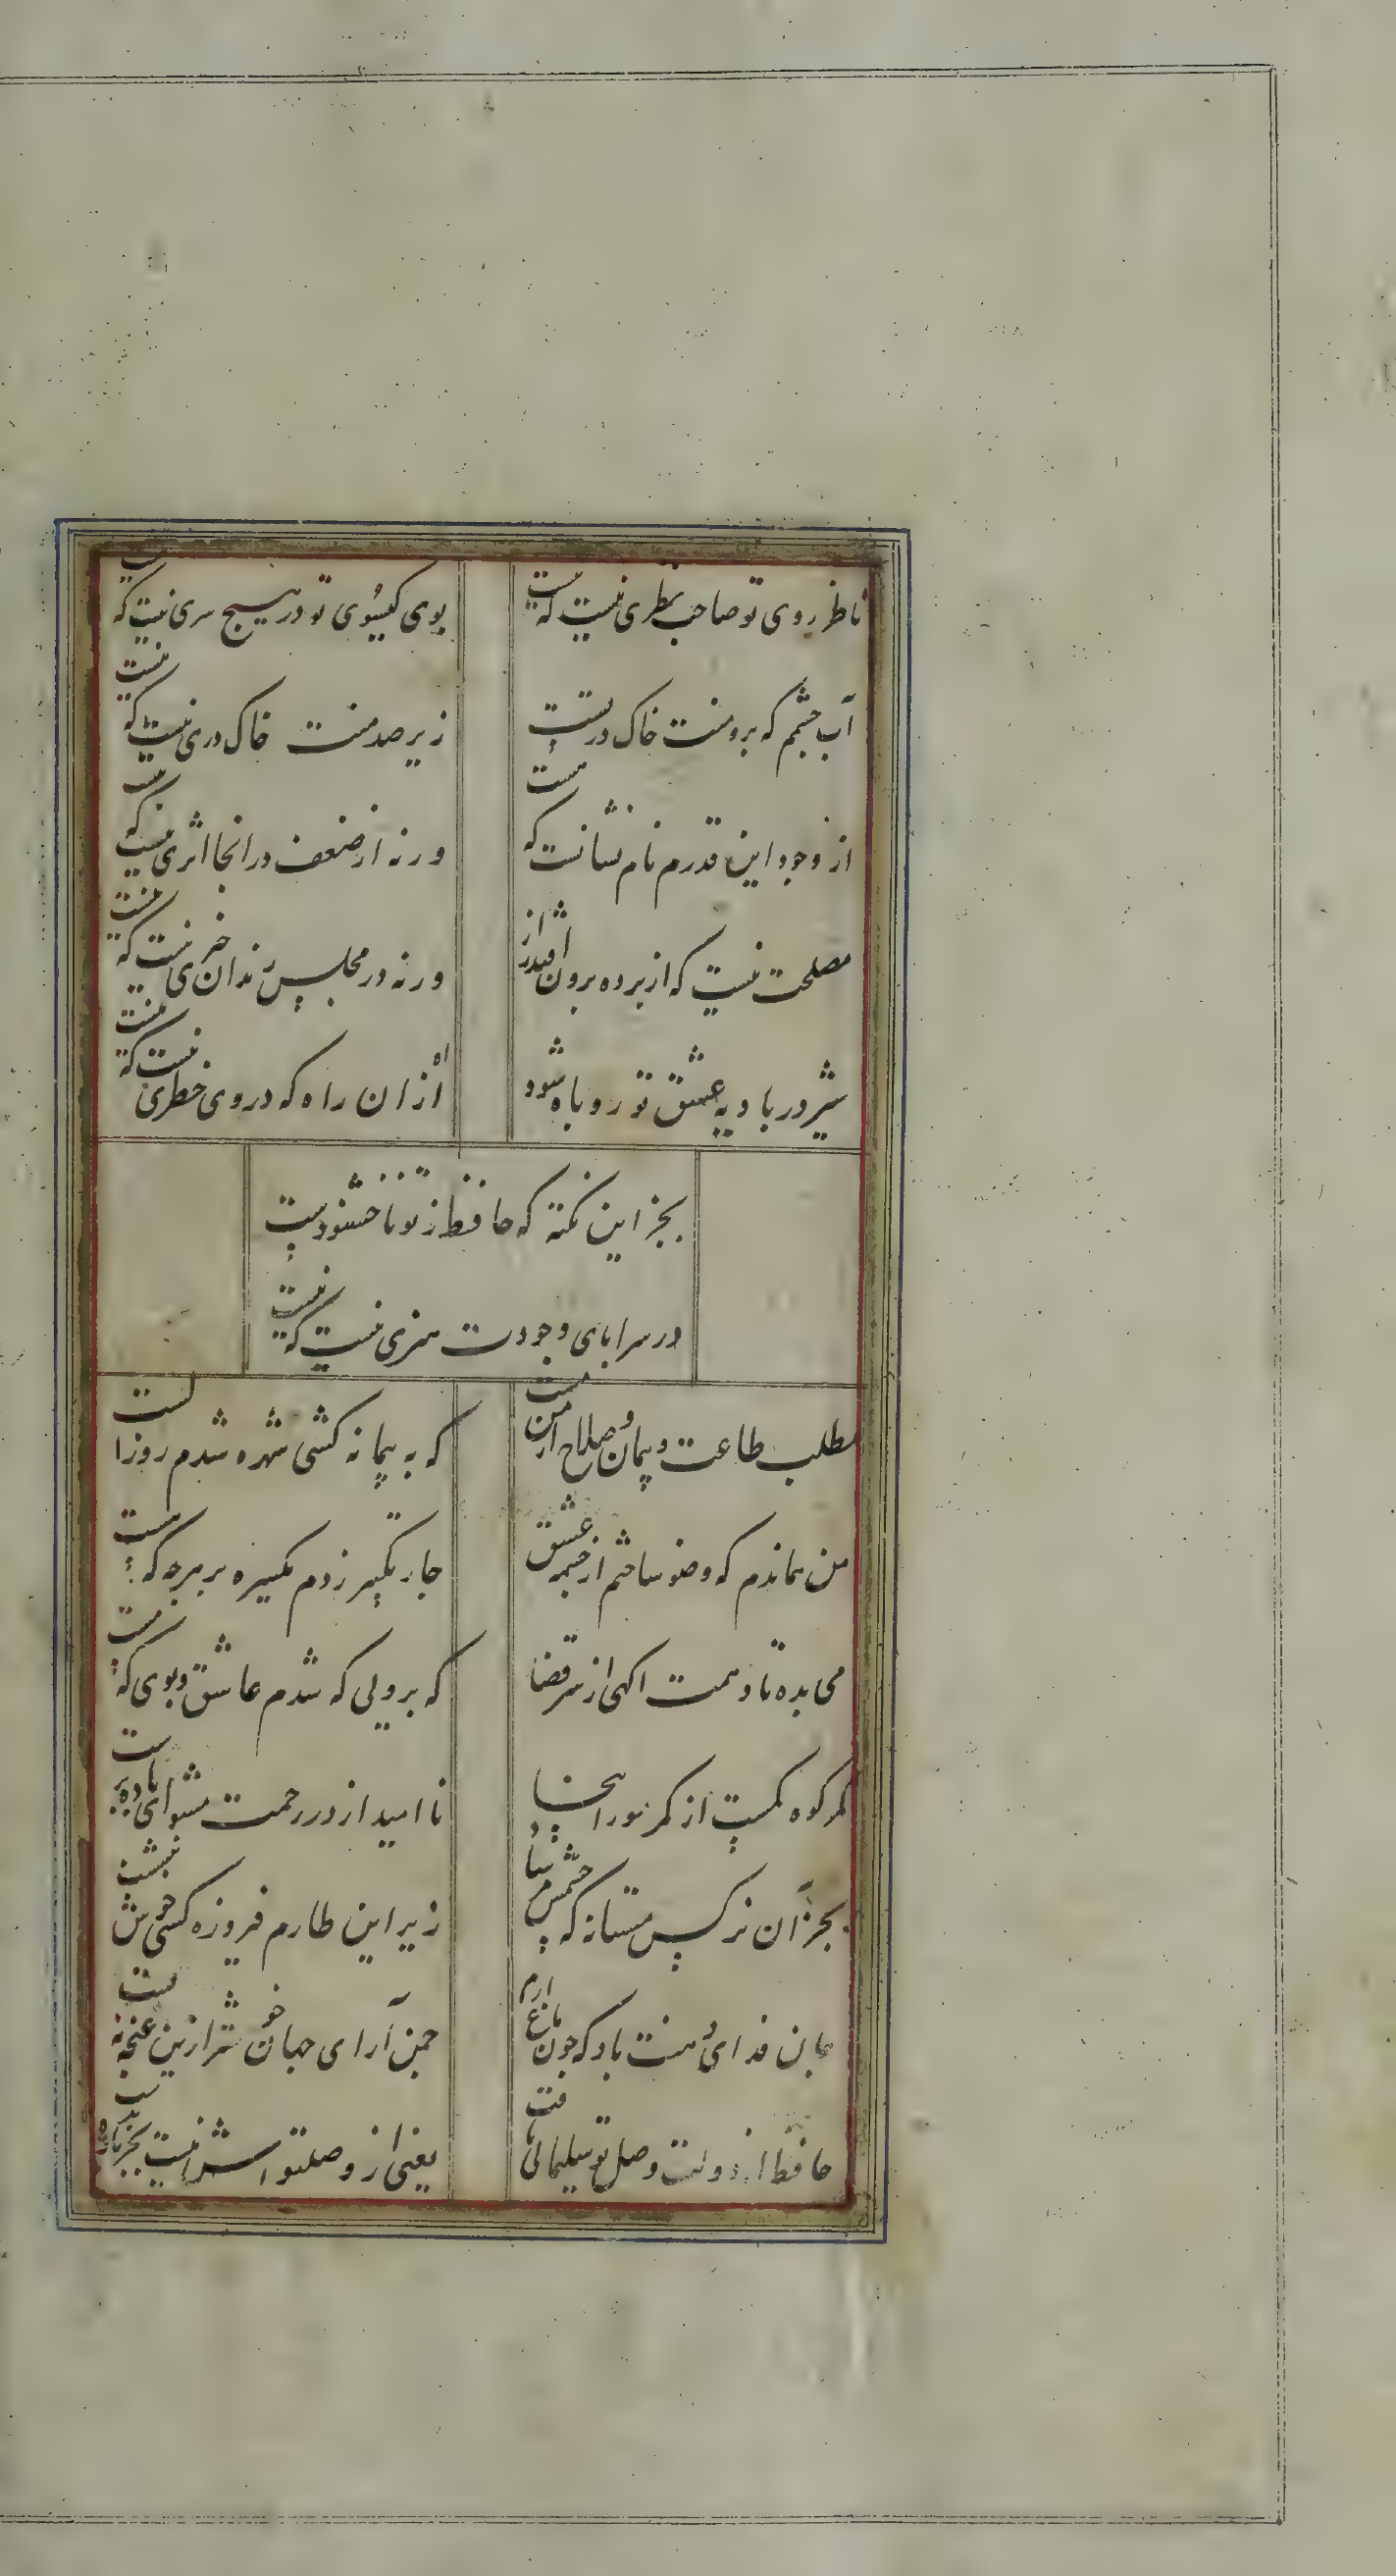 ناظر روی تو صاحب نظری نیست که نیست
بوی کیسوی تو در هیسچ سری نیست که نیست
آب چشمم که برو منت خاک در تست
زیر صد منت خاک دری نیست که نیست
از وجود این قدرم نام نشانست که هست
ورنه از ضعف در انجا اثری نیست که نیست
مصلحت نیست که از پرده برون افتد راز
ورنه در مجلس رندان خبری نیست که نیست
شیر در بادیه عشق تو روباه شود
آه ازان راه که در وی خطری نیست که نیست
بجز این نکته که حافظ ز تو ناخشنودست
در سرابای وجودت هنری نیست که نیست
مطلب طاعت و پیمان و صلاح از من مست
که به پیمانه کشی شهره شدم روز الست
من هماندم که وضو ساختم از چشمه عشق
چار تکپیر زدم یکسره بر هرچه که هست
می بده تا دهمت اکهی از سر قضا
که بروی که شدم عاشق و بوی که مست
کمر کوه کمست از کمر مور اینجا
نا امید از در رحمت مشو ای باده پرست
بجز آن نرکس مستانه که چشمش مرساد
زیر این طارم فیروزه کسی خوش ننشست
جان فدای دهنت باد که چون باغ ارم
چمن آرای جهان خوشتر ازین غنچه نبست
حافظ از دولت وصل تو سلیمانی یافت
یعنی از وصلتو اش نیست بجز باد بدست